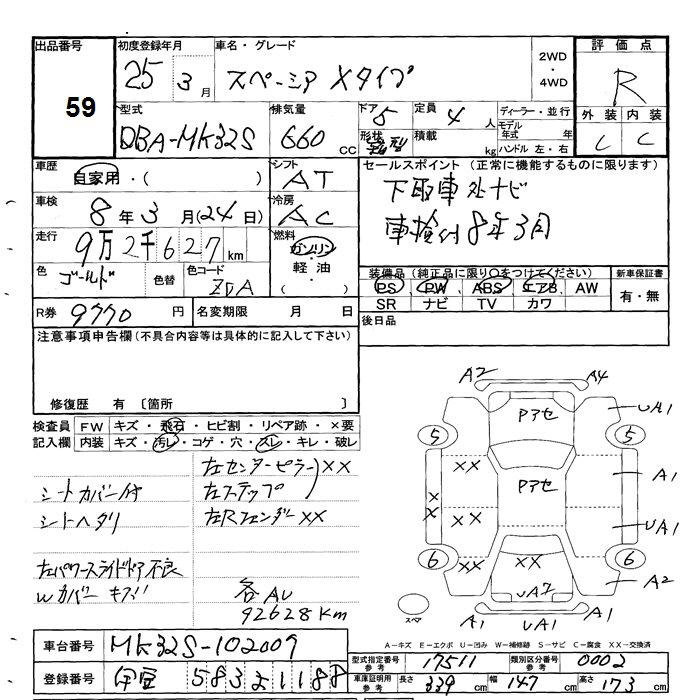 出品番号
59
初度登録年月
25 3 月
車名・グレード
スペーシア Xタイプ
2WD
・
4WD
評価点
R
外装 内装
C C
型式
DBA-MK32S
排気量
660 CC
ドア 5
形状 箱型
定員 4 人
積載 kg
ディーラー・並行
モデル年式 年
ハンドル 左・右
車歴
自家用・( )
シフト
AT
セールスポイント (正常に機能するものに限ります)
下取車 社ナビ
車検付 8年3月
車検
8 年 3 月(24日)
冷房
AC
走行
9万2千627km
燃料
ガソリン
軽油
( )
色
ゴールド
色替
色コード
ZDA
装備品 (純正品に限り○をつけてください)
PS PW ABS エアB AW
SR ナビ TV カワ
新車保証書
有・無
R券 9770 円
名変期限 月 日
後日品
注意事項申告欄(不具合内容等は具体的に記入して下さい)
修復歴 有 〔箇所 〕
検査員記入欄
FW キズ・飛石・ヒビ割・リペア跡・×要
内装 キズ・汚レ・コゲ・穴・スレ・キレ・破レ
シートカバー付
シートヘタリ
左パワースライドドア不良
Wカバー キズ!!
左センターピラー XX
左ステップ
左Rフェンダー XX
各AU
92628Km
A2 A4
Pアセ
UA1
5 5
XX
Pアセ
A1
X
X
XX
UA1
6 6
XX XX
A2
UA2
スペア
A1 UA1 A1
A-キズ E-エクボ U-凹み W-補修跡 S-サビ C-腐食 XX-交換済
車台番号 MK32S-102009
登録番号 伊豆 583 え 1188
型式指定番号 参考 17511
類別区分番号 参考 0002
車庫証明用 参考 長さ 339 cm 幅 147 cm 高さ 173 cm